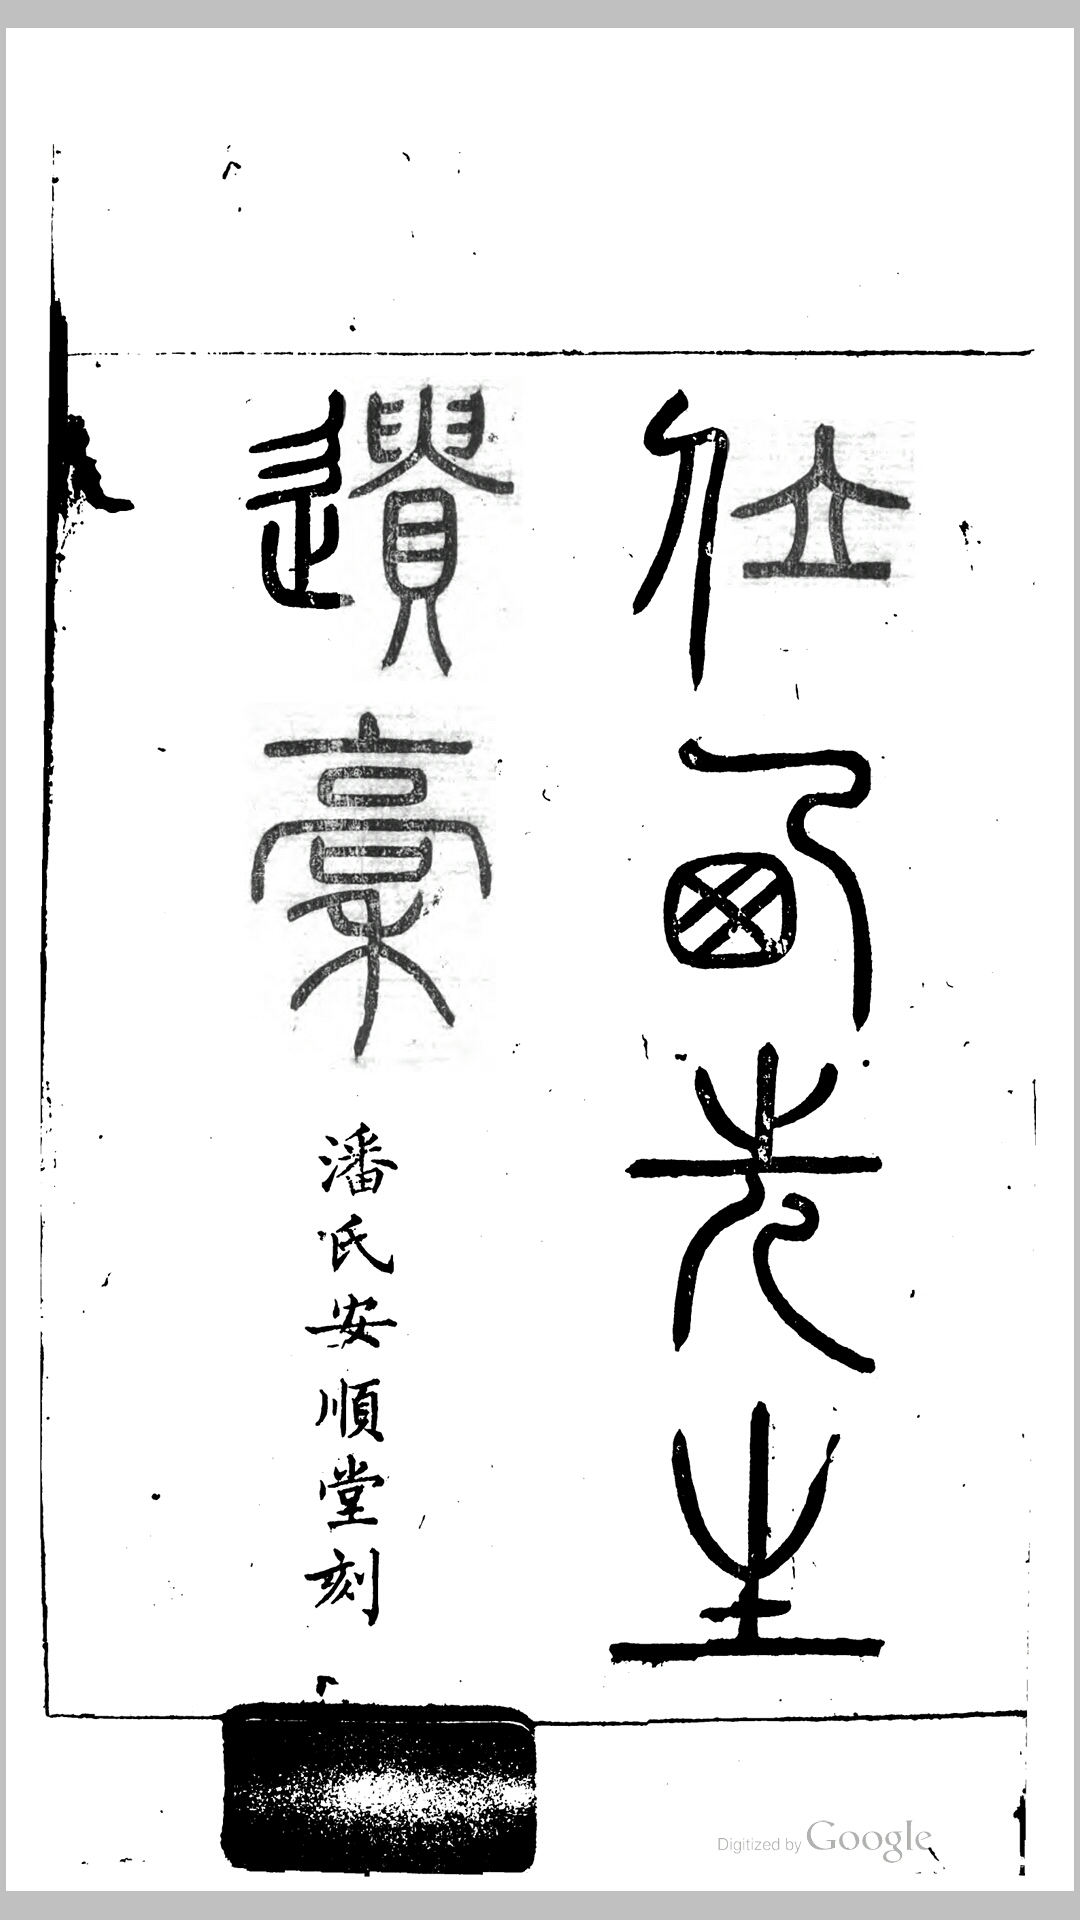 位西先生
遺稾
潘氏安順堂刻
Digitized by Google